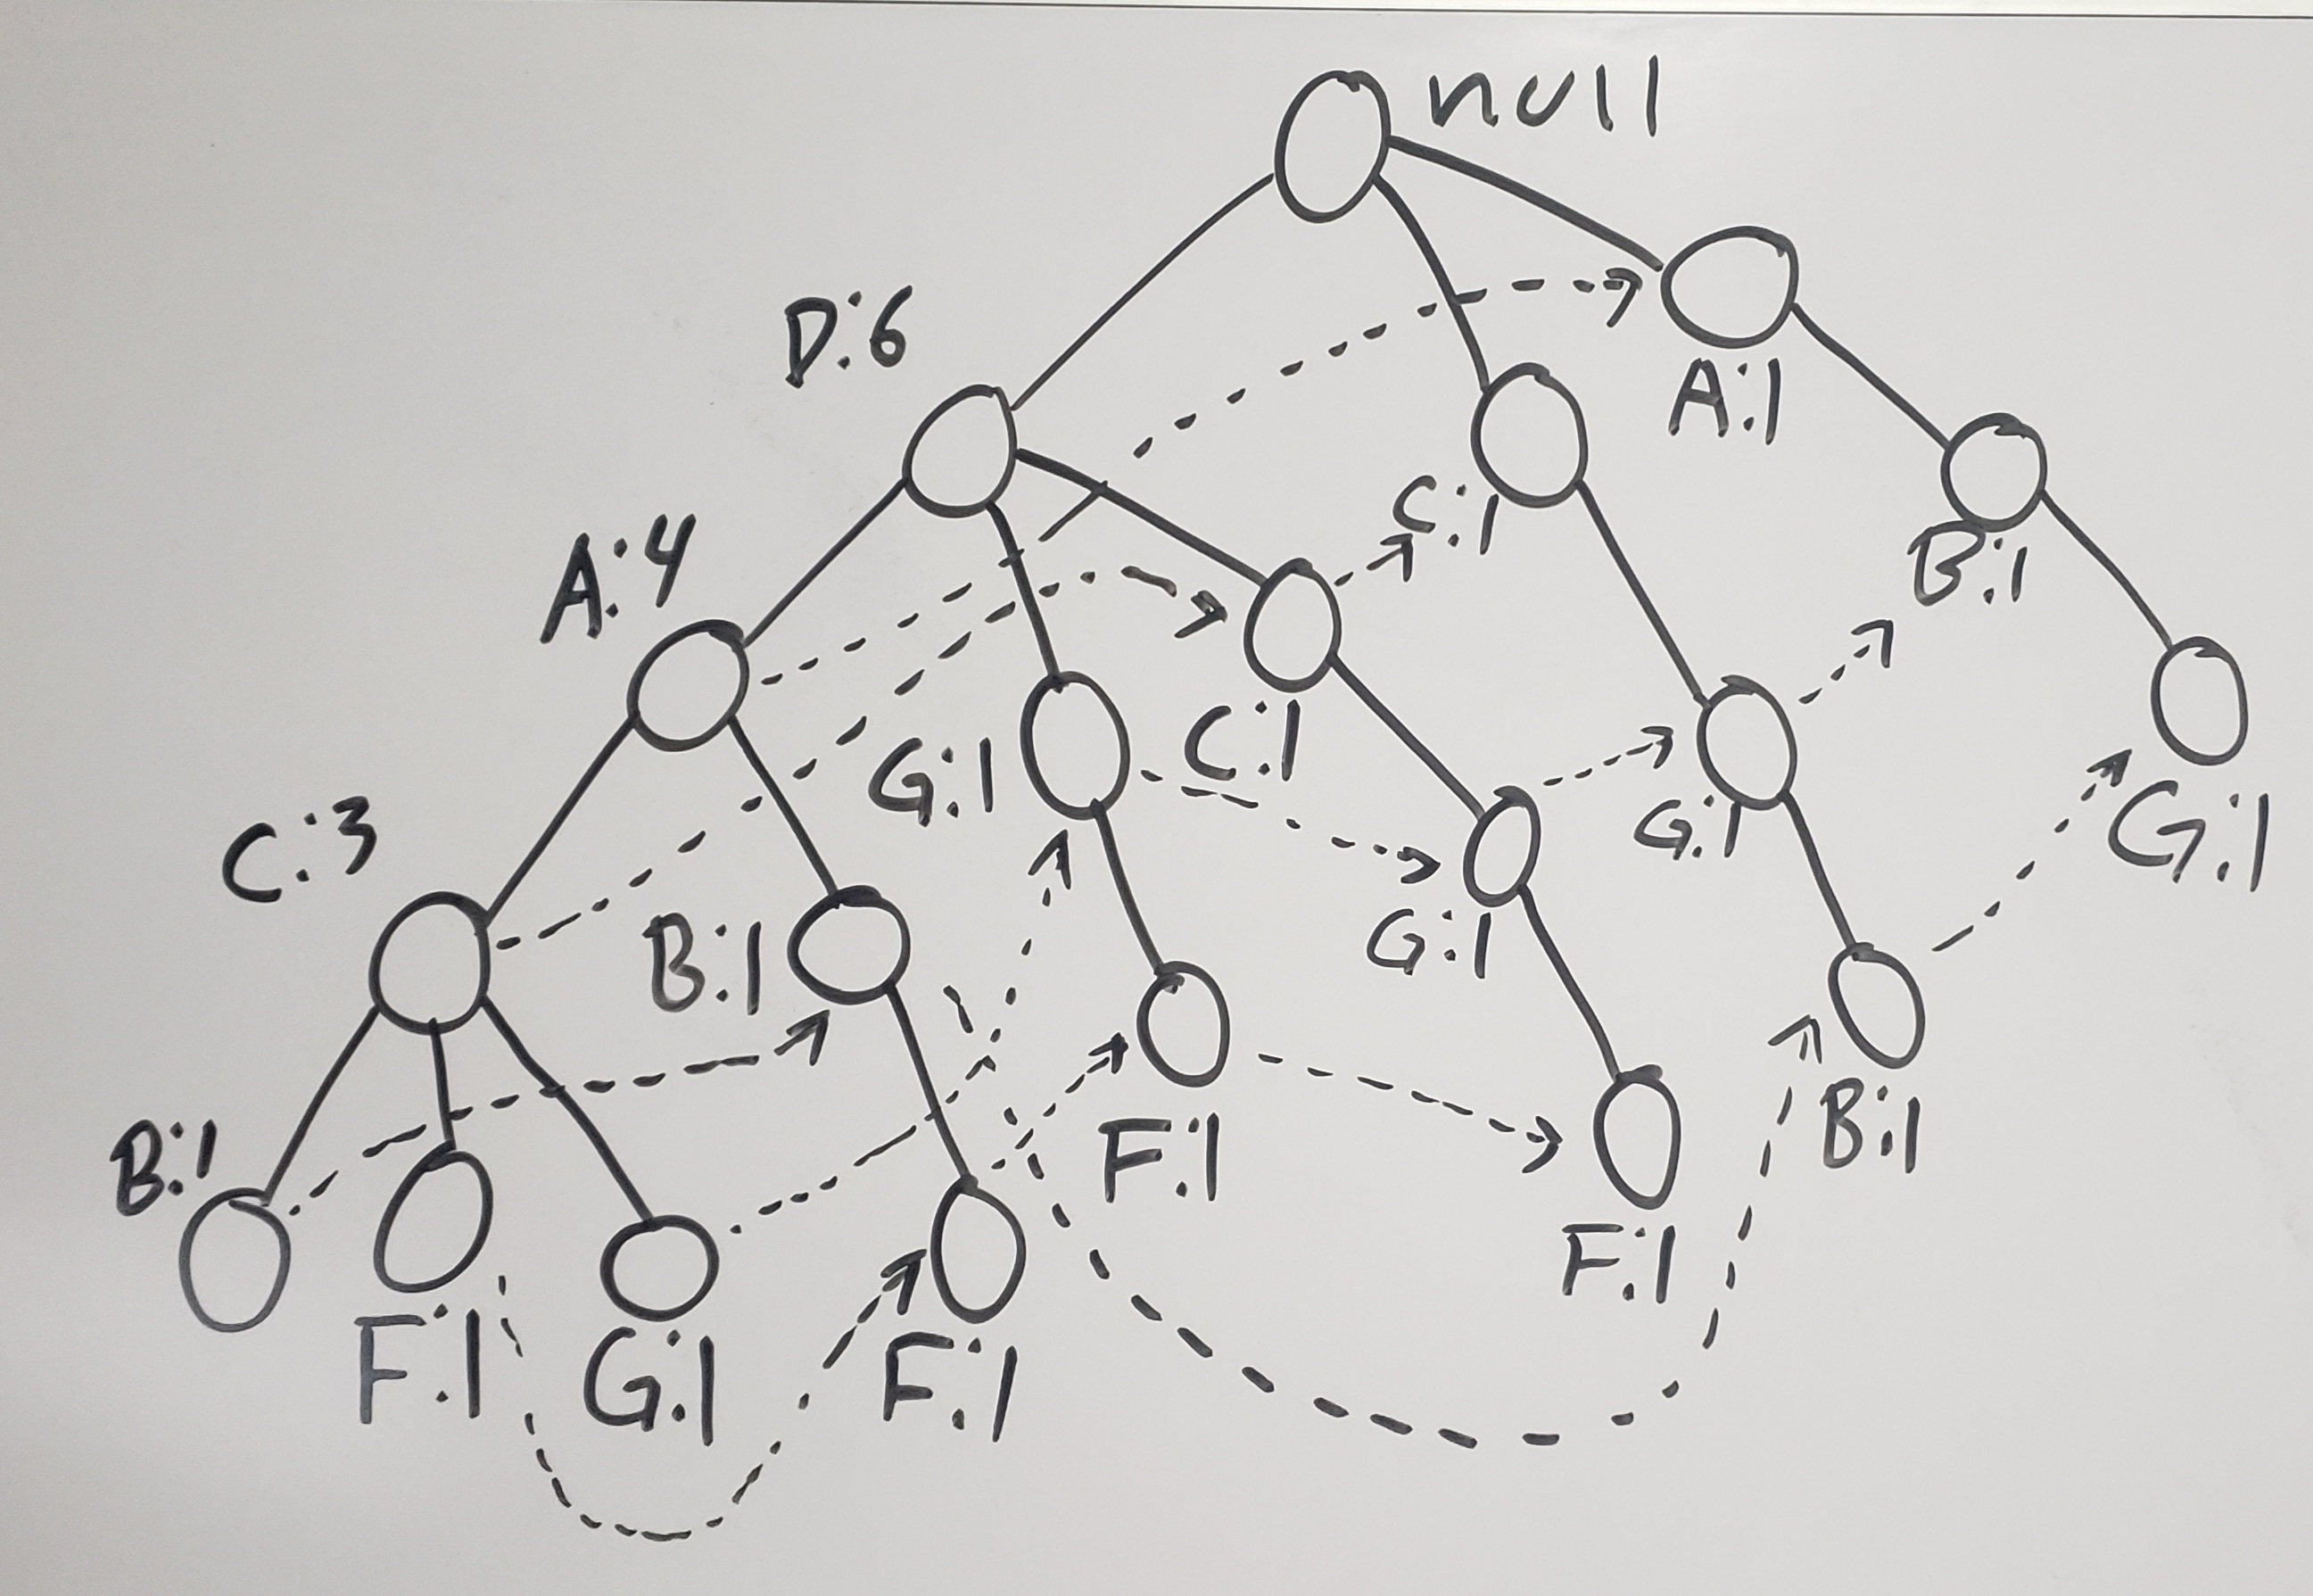 null
D:6
A:1
C:1
A:4
B:1
G:1
C:1
C:3
G:1
G:1
B:1
G:1
B:1
F:1
B:1
F:1
F:1
G:1
F:1